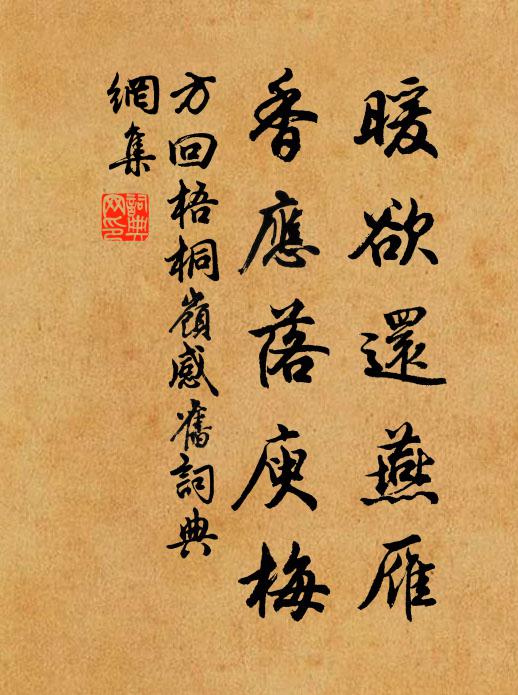 暖欲還燕雁
香應落庾梅
方回梧桐嶺感舊詞典
網集
詞典
网印